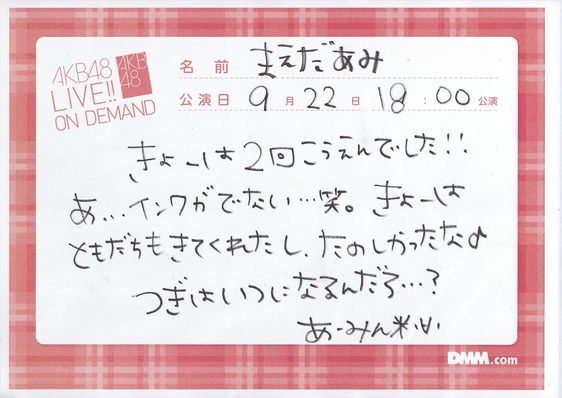 AKB48
LIVE!!
ON DEMAND
AKB
48
名前 まえだあみ
公演日 9月22日 18:00公演
きょーは2回こうえんでした!!
あ...インクがでない...笑。きょーは
ともだちもきてくれたし、たのしかったな♪
つぎはいつになるんだろ...?
あーみん
DMM.com